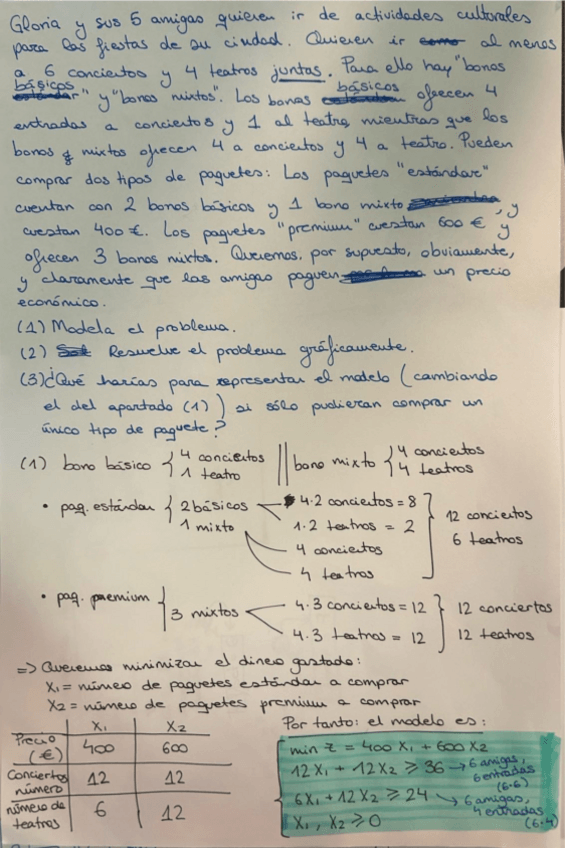 Gloria y sus 5 amigas quieren ir de actividades culturales
para las fiestas de su ciudad. Quieren ir al menos
a 6 conciertos y 4 teatros juntas. Para ello hay "bonos
básicos" y "bonos mixtos". Los bonos básicos ofrecen 4
entradas a conciertos y 1 al teatro, mientras que los
bonos mixtos ofrecen 4 a conciertos y 4 a teatro. Pueden
comprar dos tipos de paquetes: Los paquetes "estándar"
cuentan con 2 bonos básicos y 1 bono mixto, y
cuestan 400 €. Los paquetes "premium" cuestan 600 € y
ofrecen 3 bonos mixtos. Queremos, por supuesto, obviamente,
y claramente que las amigas paguen un precio
económico.
(1) Modela el problema.
(2) Resuelve el problema gráficamente.
(3) ¿Qué harías para representar el modelo (cambiando
el del apartado (1)) si sólo pudieran comprar un
único tipo de paquete?
(1) bono básico { 4 conciertos 1 teatro || bono mixto { 4 conciertos 4 teatros
• paq. estándar { 2 básicos 1 mixto
4·2 conciertos = 8
1·2 teatros = 2
4 conciertos
4 teatros
} 12 conciertos
6 teatros
• paq. premium { 3 mixtos
4·3 conciertos = 12
4·3 teatros = 12
} 12 conciertos
12 teatros
=> Queremos minimizar el dinero gastado:
X₁ = número de paquetes estándar a comprar
X₂ = número de paquetes premium a comprar
X₁ X₂
Precio (€) 400 600
Conciertos número 12 12
número de teatros 6 12
Por tanto: el modelo es:
min z = 400 X₁ + 600 X₂
12 X₁ + 12 X₂ ≥ 36 → 6 amigas, 6 entradas (6·6)
6 X₁ + 12 X₂ ≥ 24 → 6 amigas, 4 entradas (6·4)
X₁, X₂ ≥ 0